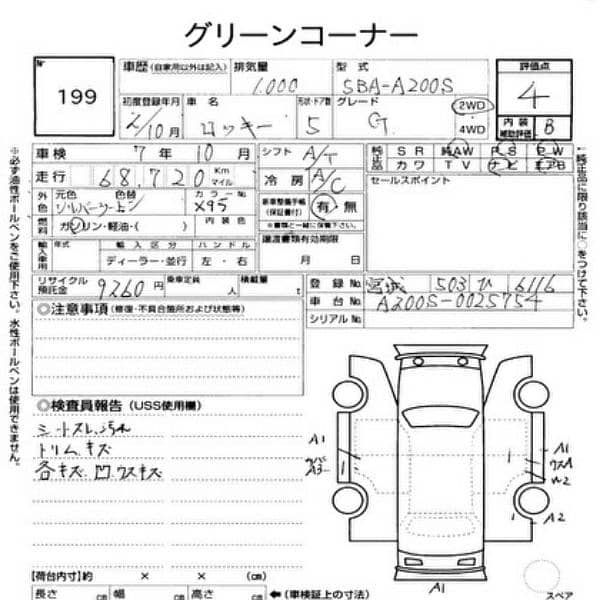 グリーンコーナー
№ 199
車歴 (自家用以外は記入) 排気量 1,000 型式 SBA-A200S
初度登録年月 2/10月 車名 ロッキー 形状・ドア数 5 グレード G 2WD 4WD
評価点 4
内装補助評価 B
車検 7年 10月 シフト A/T
純正品 SR 純AW PS PW
カワ TV ナビ エアB
走行 68,720 Km マイル 冷房 A/C
セールスポイント
外色 元色 色替 シルバーツートン カラーNo. X95
燃料 ガソリン・軽油・( ) 内装色
新車整備手帳(保証書付) 有・無
※書類と一緒に保管下さい。
輸入車用 年式 輸入区分 ディーラー・並行 ハンドル 左・右
譲渡書類有効期限 月 日
リサイクル預託金 9260円 乗車定員 人 積載量 t
登録No. 宮城 503 ひ 6116
車台No. A200S-0025754
シリアルNo.
◎注意事項 (修復・不具合箇所および状態等)
◎検査員報告 (USS使用欄)
シートスレ、汚れ
トリムキズ
各キズ、凹、ウスキズ
A1
A3
A1
ウスA
W2
A2
A1
スペア
【荷台内寸】約 × × (cm)
長さ cm 幅 cm 高さ cm ←(車検証上の寸法)
※必ず油性ボールペンをご使用下さい。水性ボールペンは使用できません。
純正品に限り該当に○をつけて下さい。